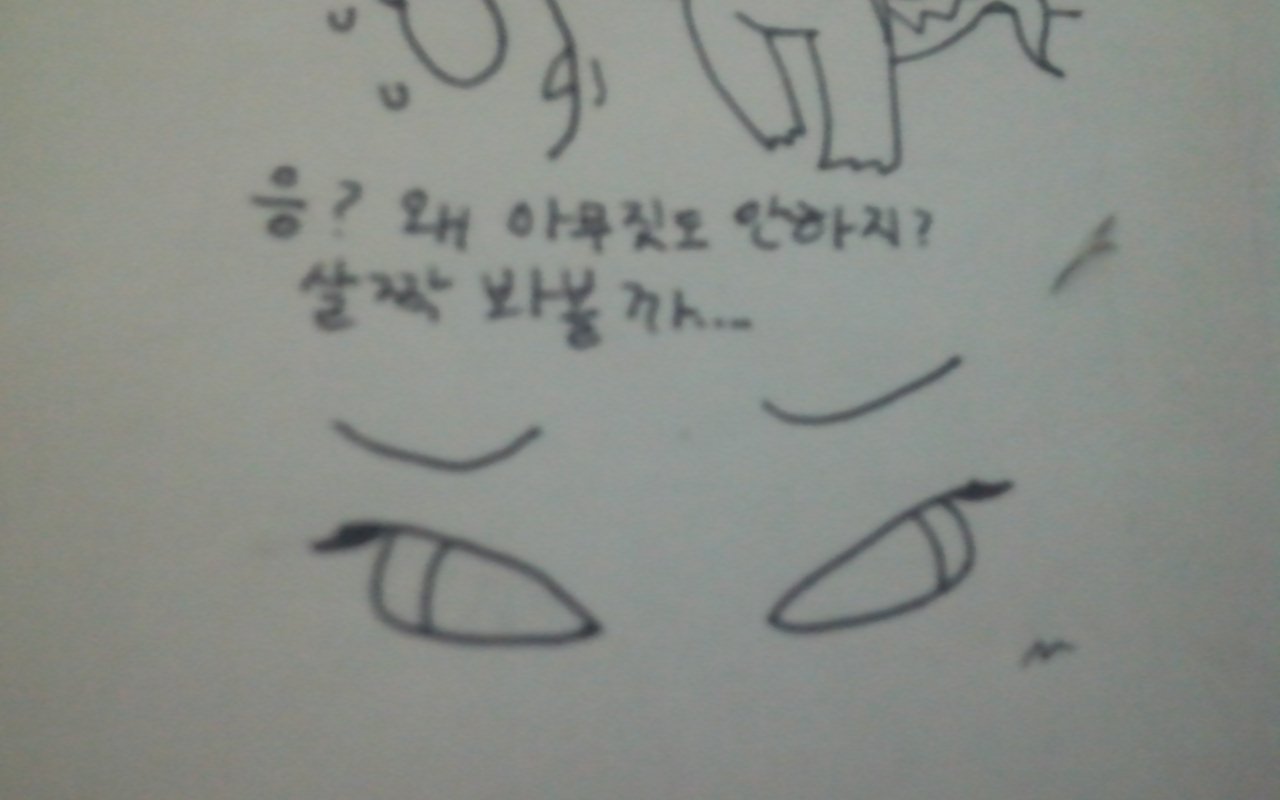 응? 왜 아무짓도 안하지?
살짝 봐볼까...